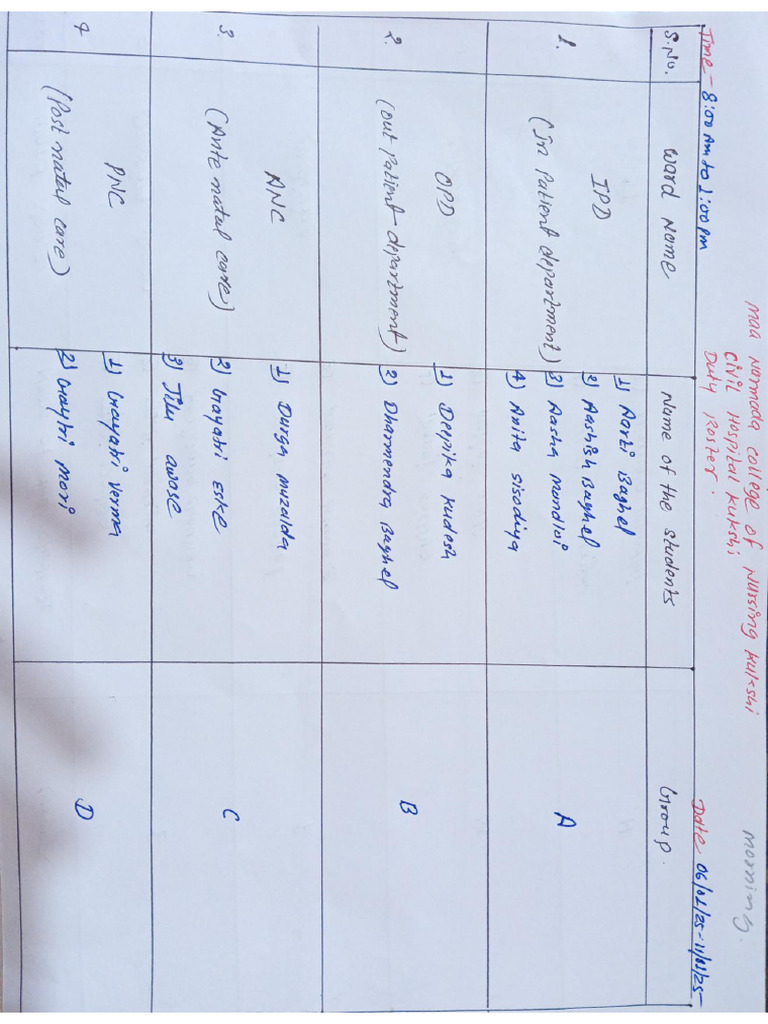 morning.
Maa Narmada college of Nursing Kukshi
Civil Hospital Kukshi
Duty Roster.
Time - 8:00 Am to 2:00 Pm
Date 06/02/25-11/02/25-
S.No. Ward Name Name of the students Group.
1. IPD (In Patient department) A
1) Aarti Baghel
2) Aashish Baghel
3) Aasha Mandloi
4) Anita Sisodiya
2. OPD (Out Patient-department) B
1) Deepika Kudesh
2) Dharmendra Baghel
3. ANC (Ante natal care) C
1) Durga Muzalda
2) Gayatri Eske
3) Tilu Awase
4 PNC (Post natal care) D
1) Gayatri Verma
2) Gaytri Mori